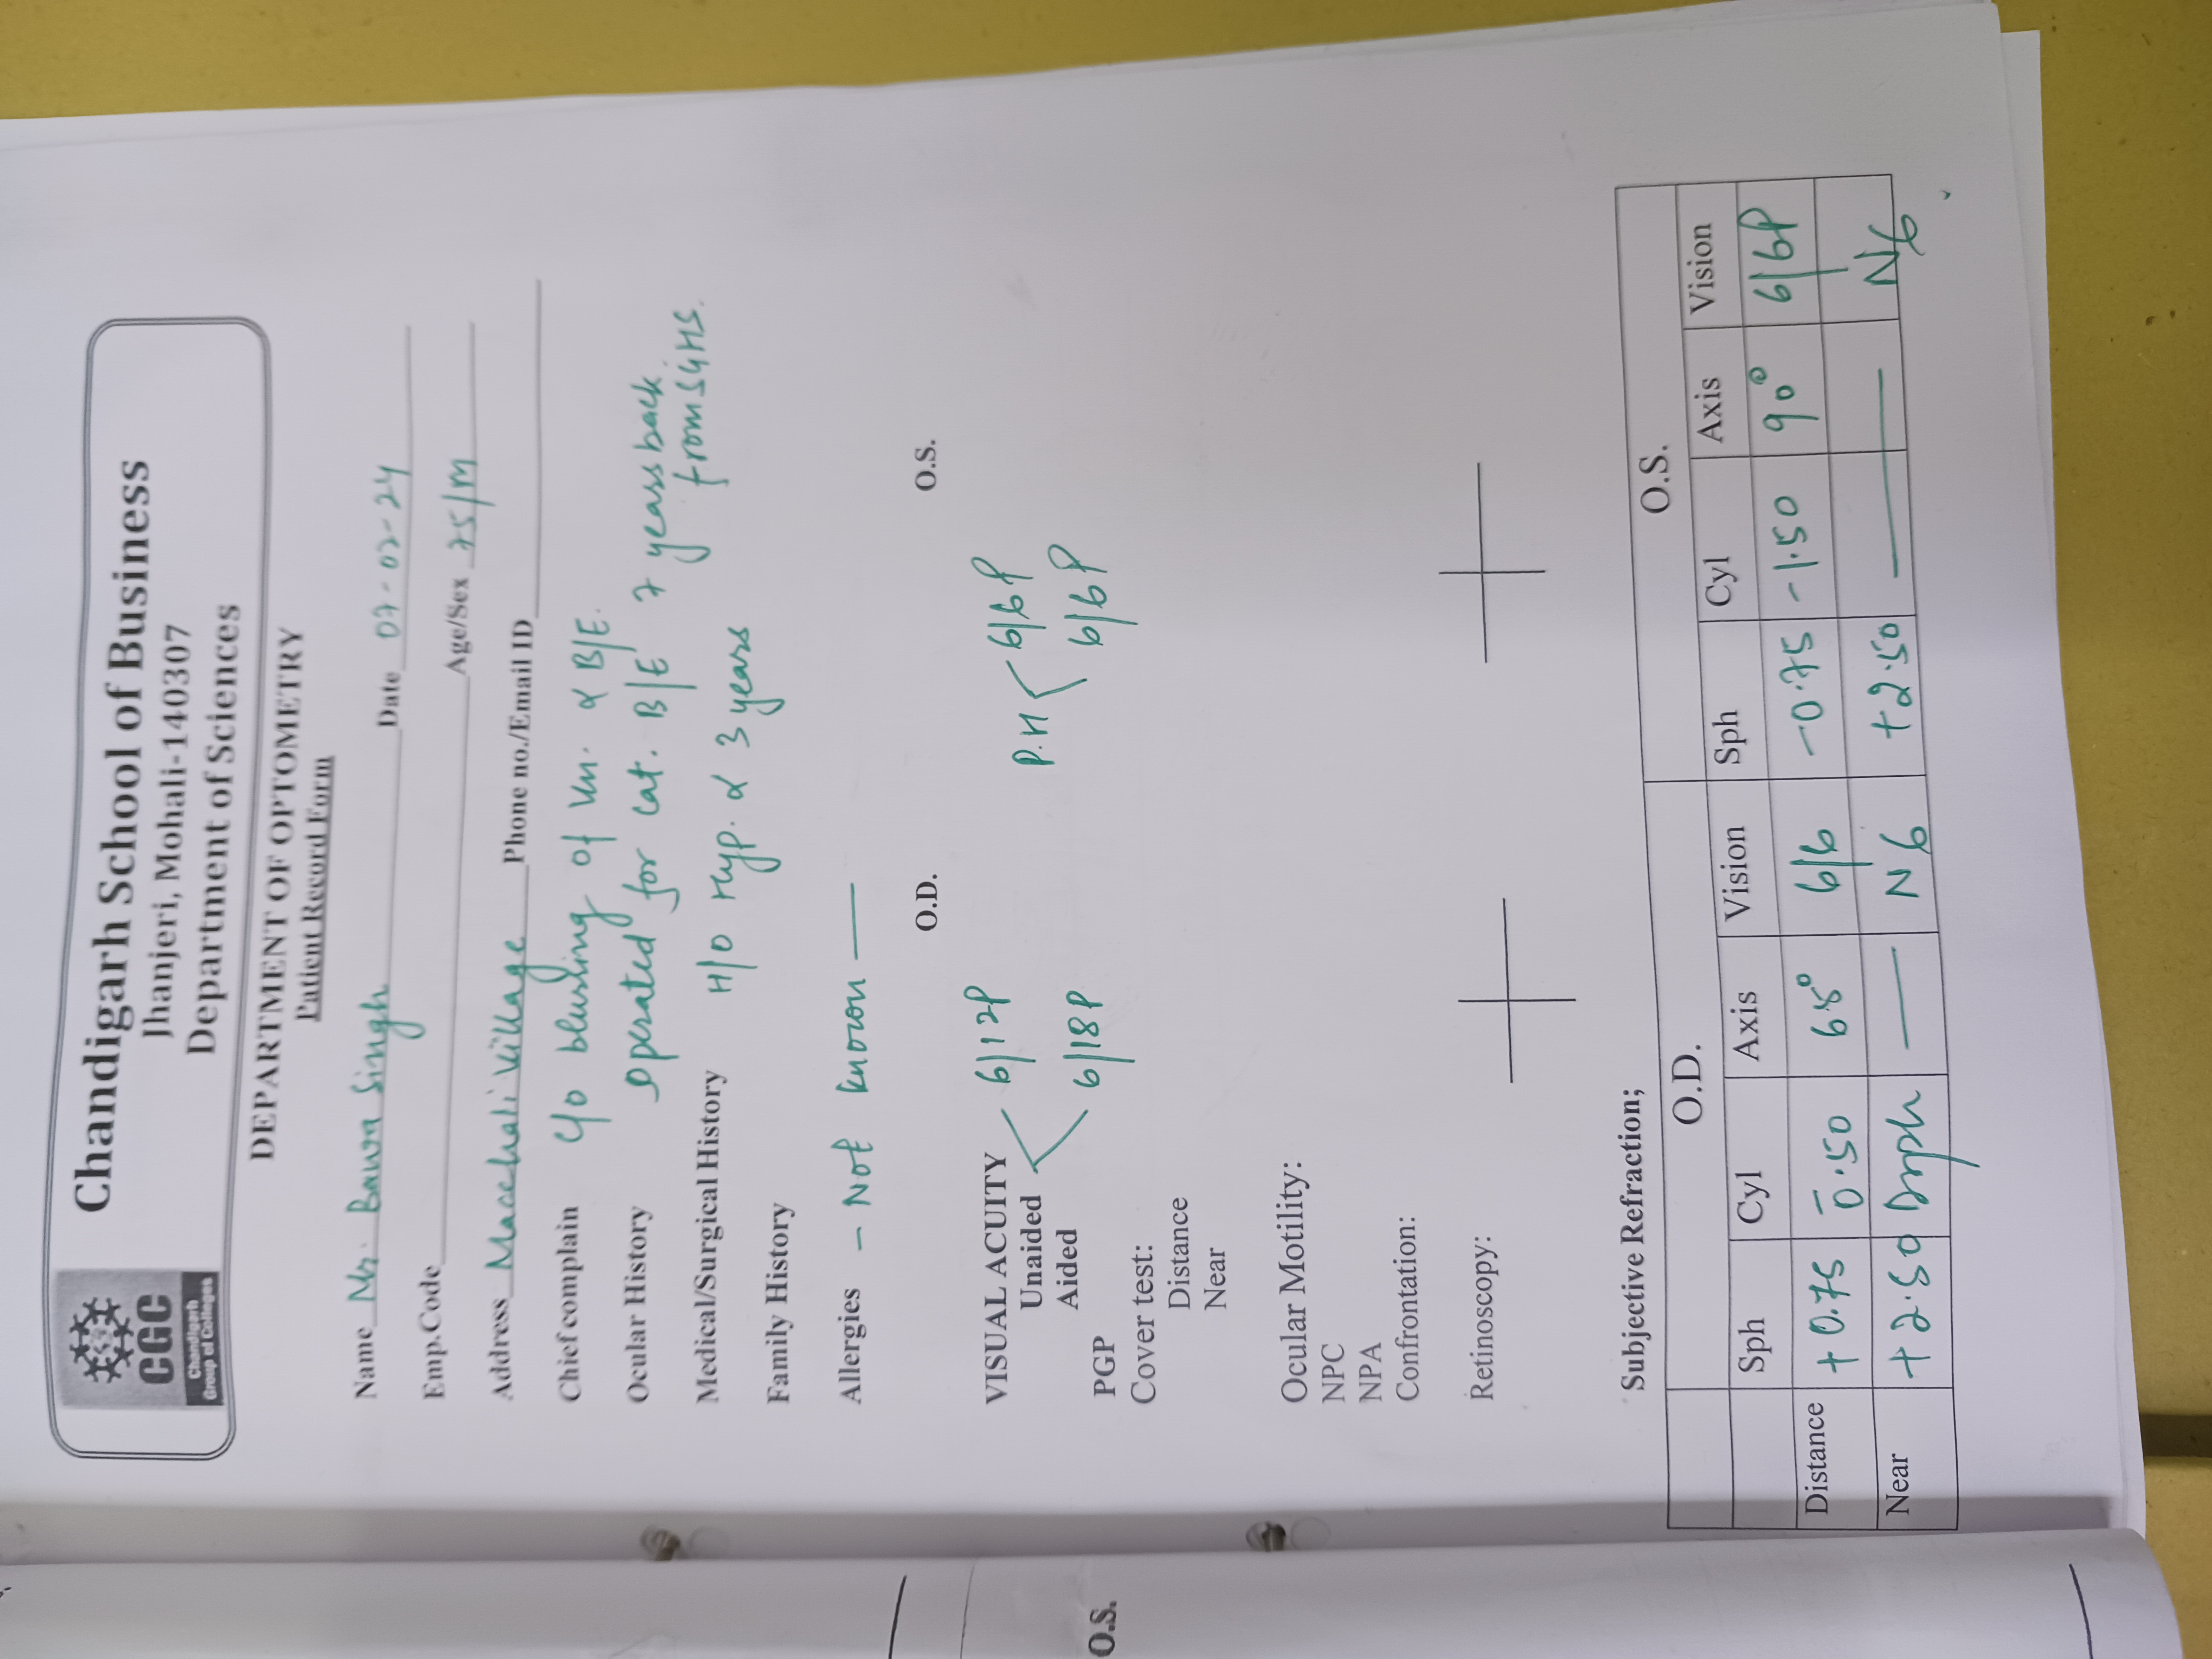 CGC
Chandigarh
Group of Colleges
Chandigarh School of Business
Jhanjeri, Mohali-140307
Department of Sciences
DEPARTMENT OF OPTOMETRY
Patient Record Form
Name Mr. Bawa Singh Date 07-02-24
Emp.Code Age/Sex 75/M
Address Macchali Village Phone no./Email ID
Chief complain c/o blurring of vn. α B/E.
Ocular History Operated for cat. B/E 7 years back.
from SGHS.
Medical/Surgical History H/O Hyp. α 3 years
Family History
Allergies - Not known —
O.D. O.S.
VISUAL ACUITY 6/12P 6/6P
Unaided P.H
Aided 6/18P 6/6P
O.S.
PGP
Cover test:
Distance
Near
Ocular Motility:
NPC
NPA
Confrontation:
Retinoscopy:
Subjective Refraction;
O.D. O.S.
Sph Cyl Axis Vision Sph Cyl Axis Vision
Distance +0.75 -0.50 68° 6/6 -0.75 -1.50 90° 6/6P
Near +2.50 Dsph — N6 +2.50 — N6